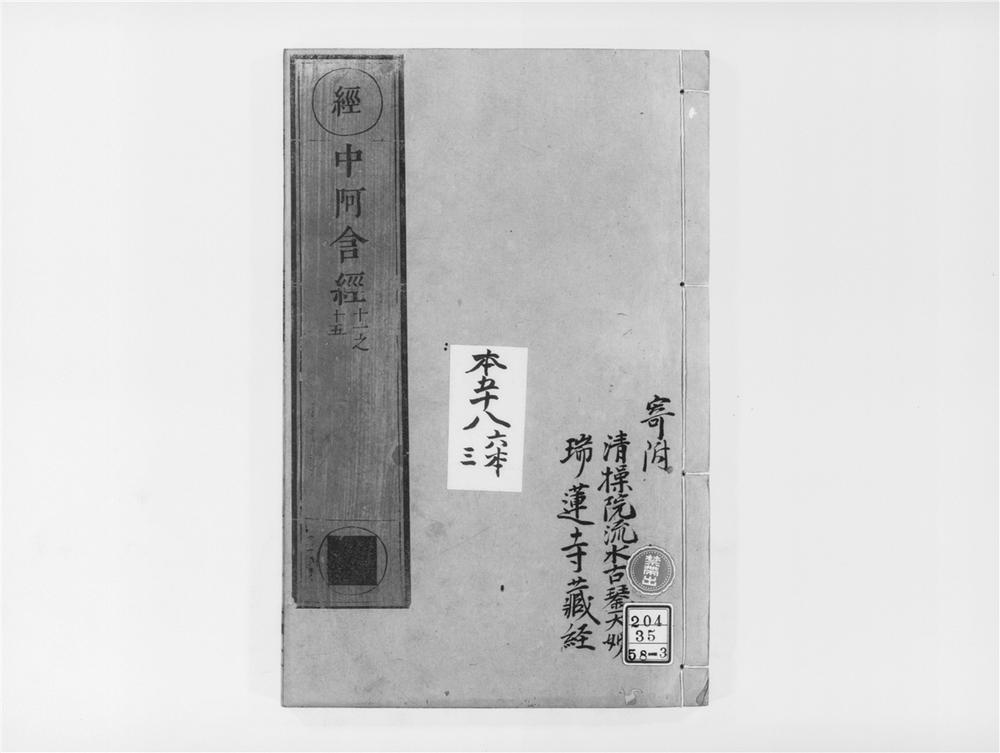 寄附
清操院流水古琴大姉
瑞蓮寺藏経
禁帶出
204
35
58-3
本五十八
六本
三
經
中阿含經
十一之
十五